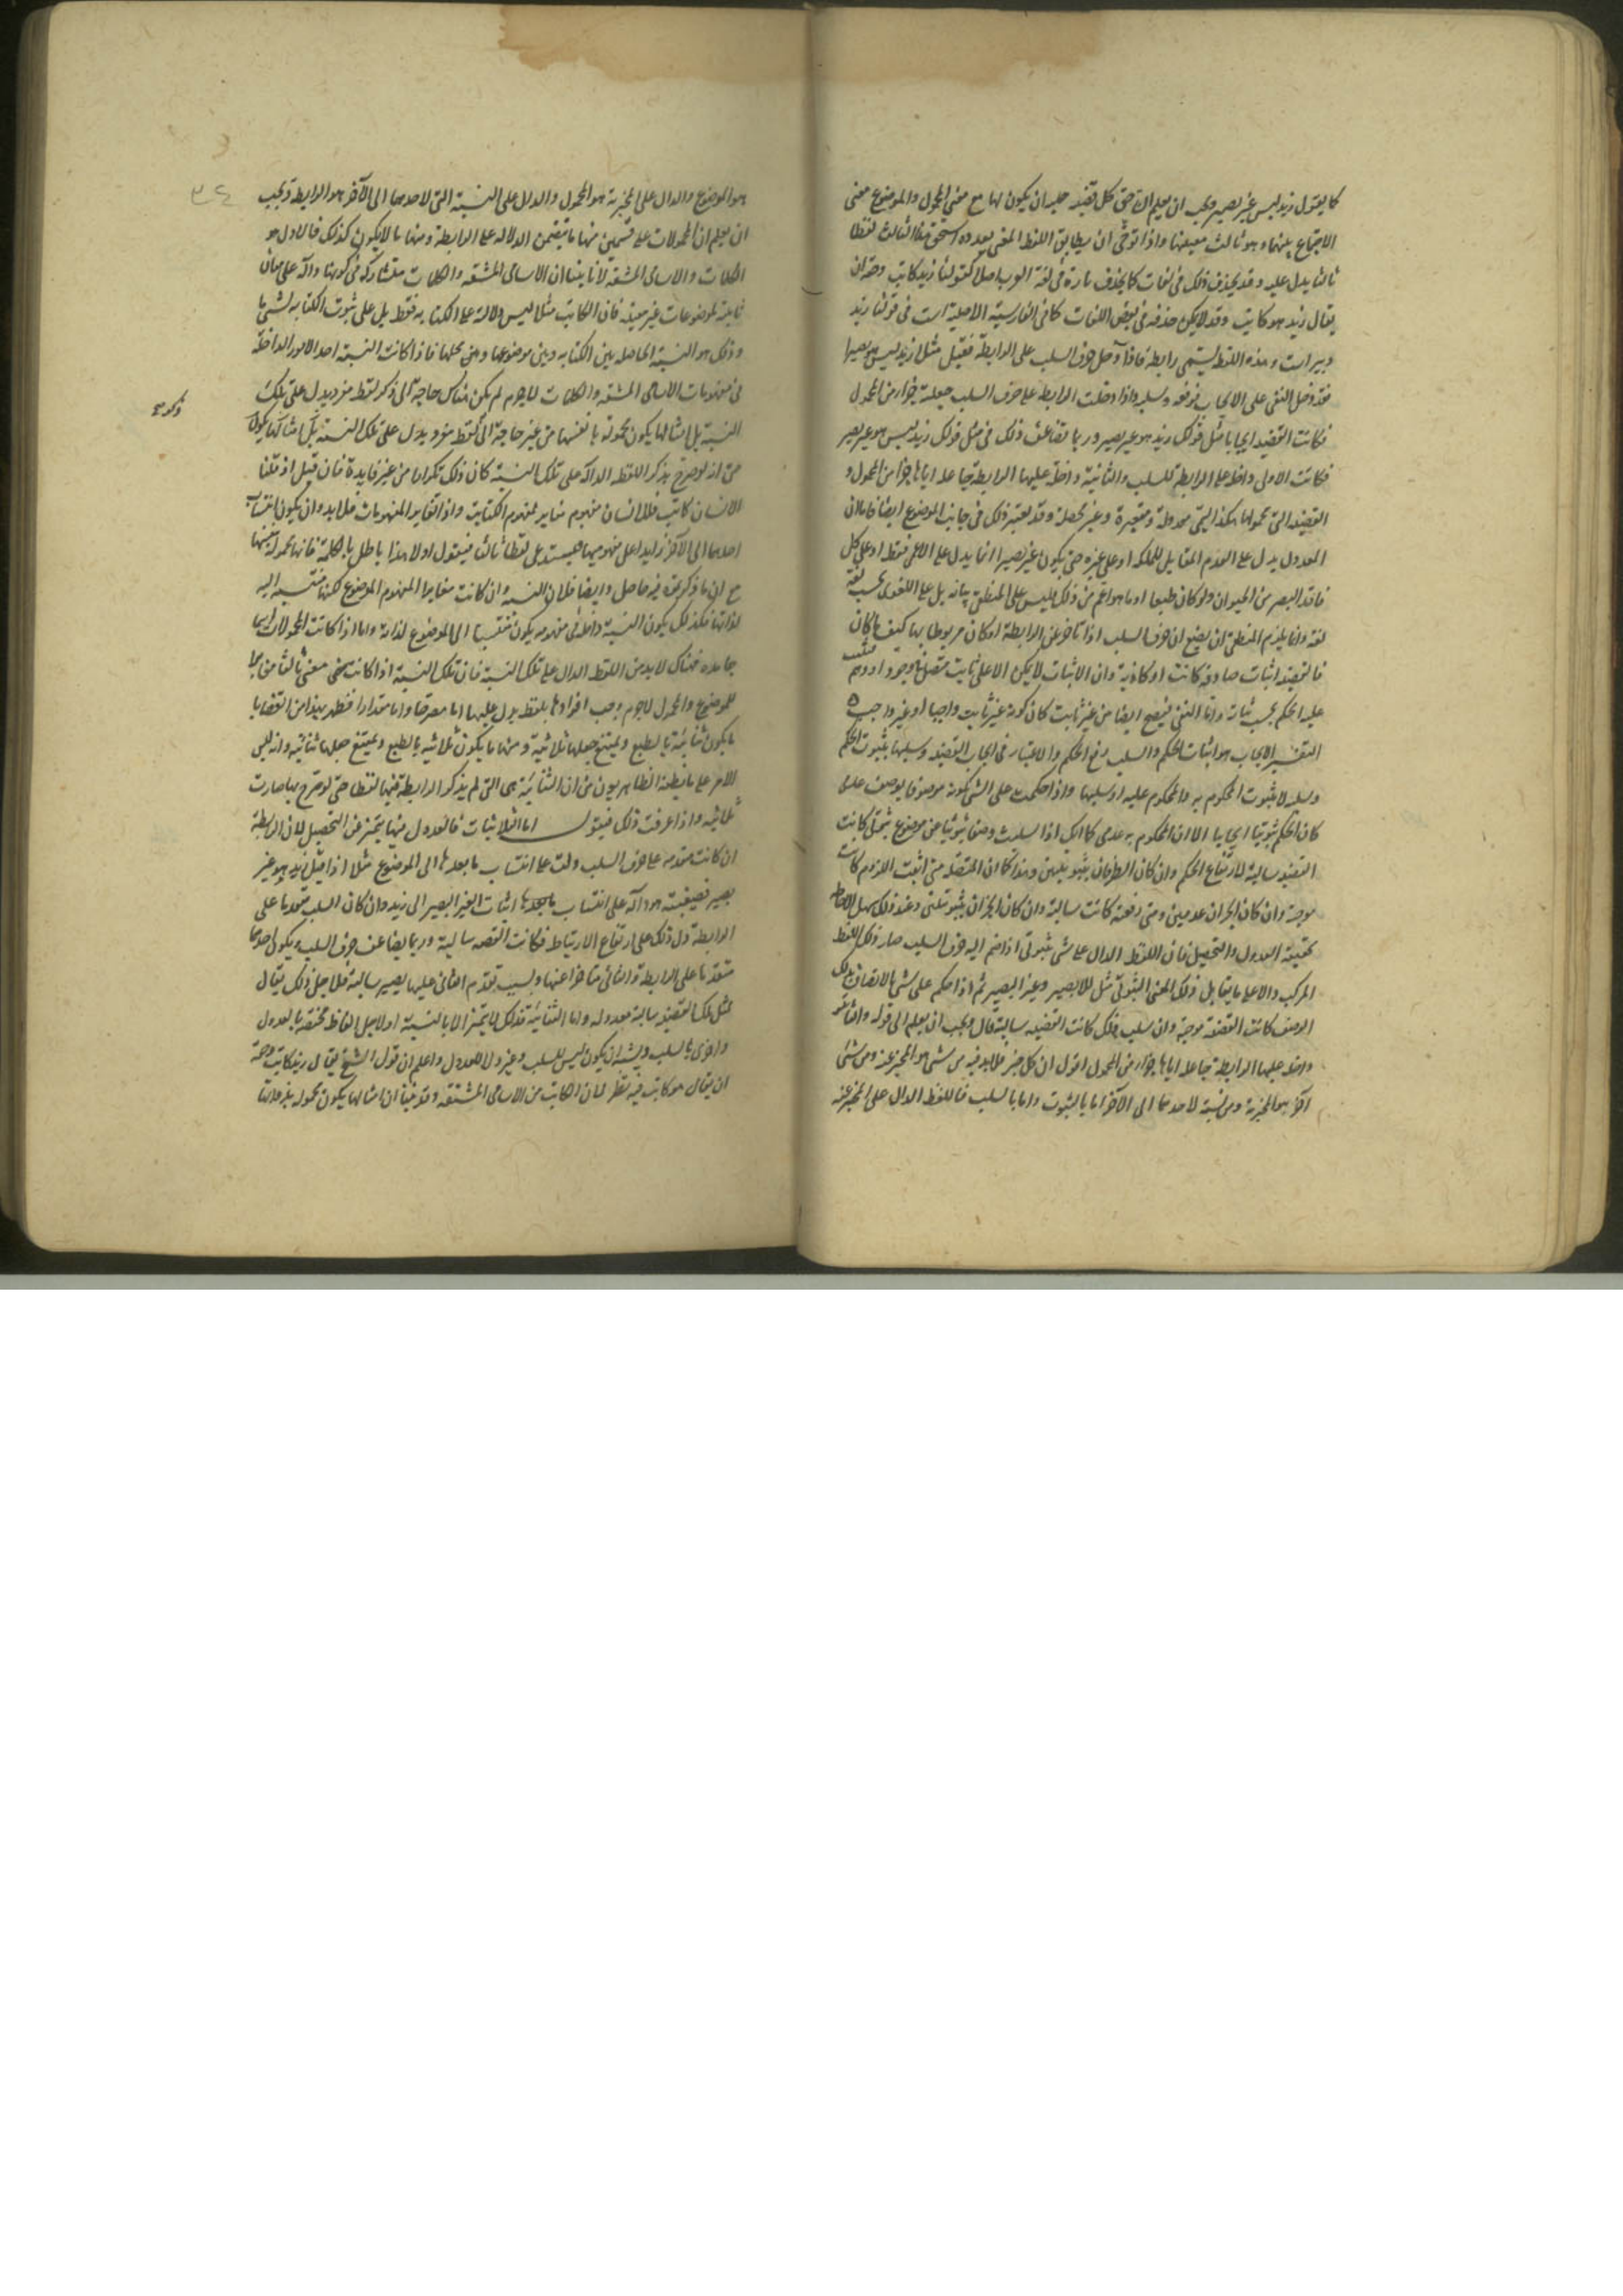 كما يقول زيد ليس غير بصير ويجب ان يعلم ان حق كل قضية حملية ان يكون لها مع معنى المحمول والموضوع معنى
الاجتماع بينهما وهو ثالث معنييهما واذا توخى ان يطابق اللفظ المعنى بعدده استحق هذا الثالث لفظا
ثالثا يدل عليه وقد يحذف ذلك في لغات كما يحذف تارة في لغة العرب اصلا كقولنا زيد كاتب وحقه ان
يقال زيد هو كاتب وقد لا يمكن حذفه في بعض اللغات كما في الفارسية الاصلية است في قولنا زيد
دبير است وهذه اللفظة يسمى رابطة فاذا دخل حرف السلب على الرابطة فقيل مثلا زيد ليس هو بصيرا
فقد دخل النفي على الايجاب فرفعه وسلبه واذا دخلت الرابطة على حرف السلب جعلته جزءا من المحمول
فكانت القضية ايجابا مثل قولك زيد هو غير بصير وربما تضاعف ذلك في مثل قولك زيد ليس هو غير بصير
فكانت الاولى داخلة على الرابطة للسلب والثانية داخلة عليها الرابطة جاعلة اياها جزءا من المحمول و
القضية التي محمولها هكذا يسمى معدولة ومتغيرة وغير محصلة وقد يعتبر ذلك في جانب الموضوع ايضا فاما ان
المعدول يدل على العدم المقابل للملكة او على غيره حتى يكون غير بصير انما يدل على الاعمى فقط او على كل
فاقد البصر من الحيوان ولو كان طبعا او ما هو اعم من ذلك فليس على المنطقي بيانه بل على اللغوى بحسب لغة
لغة وانما يلزم المنطقي ان يضع ان حرف السلب اذا تاخر عن الرابطة او كان مربوطا بها كيف ما كان
فالقضية اثبات صادقة كانت او كاذبة وان الاثبات لا يمكن الا على ثابت متمثل في وجود او وهم
عليه الحكم بحسب ثباته واما النفى فيصح ايضا من غير ثابت كان كونه غير ثابت واجبا او غير واجب
التفسير الايجاب هو اثبات الحكم والسلب رفع الحكم والاعتبار في ايجاب القضية وسلبها بثبوت الحكم
وسلبه لا بثبوت المحكوم به والمحكوم عليه او سلبهما واذا حكمت على الشئ بكونه موصوفا بوصف عدمى
كان الحكم ثبوتيا ايجابيا الا ان المحكوم به عدمى كما انك اذا سلبت وصفا ثبوتيا عن موضوع ثبوتى كانت
القضية سالبة لارتفاع الحكم وان كان الطرفان ثبوتيين وهذا كما ان المتصلة متى اثبت اللزوم كانت
موجبة وان كان الجزءان عدميين ومتى رفعته كانت سالبة وان كان الجزءان ثبوتيين وعند ذلك سهل الاحاطة
بحقيقة العدول والتحصيل فان اللفظ الدال على شئ ثبوتى اذا ضم اليه حرف السلب صار ذلك اللفظ
المركب دالا على ما يقابل ذلك المعنى الثبوتى مثل اللابصير وغير البصير ثم اذا حكم على شئ بالاتصاف بذلك
الوصف كانت القضية موجبة وان سلب ذلك كانت القضية سالبة قال ويجب ان يعلم الى قوله والثانية
داخلة عليها الرابطة جاعلة اياها جزءا من المحمول اقول ان كل خبر فلا بد فيه من شئ هو المخبر عنه ومن شئ
آخر هو المخبر به ومن نسبة لاحدهما الى الآخر اما بالثبوت واما بالسلب فاللفظ الدال على المخبر عنه
٣٤
هو الموضوع والدال على المخبر به هو المحمول والدال على النسبة التى لاحدهما الى الآخر هو الرابطة ويجب
ان يعلم ان المحمولات على قسمين منها ما يتضمن الدلالة على الرابطة ومنها ما لا يكون كذلك فالاول هو
الكلمات والاسامى المشتقة لانا بينا ان الاسامى المشتقة والكلمات متشاركة في كونها دالة على معان
ثابتة لموضوعات غير معينة فان الكاتب مثلا ليس دلالته على الكتابة فقط بل على ثبوت الكتابة لشئ ما
وذلك هو النسبة الحاصلة بين الكتابة وبين موضوعها ومن محلها فاذا كانت النسبة احد الامور الداخلة
في مفهومات الاسامى المشتقة والكلمات لا جرم لم يكن هناك حاجة الى ذكر لفظ مفرد يدل على تلك
النسبة بل امثالها يكون محمولة بانفسها من غير حاجة الى لفظ مفرد يدل على تلك النسبة
حتى انه لو صرح بذكر اللفظة الدالة على تلك النسبة كان ذلك تكرارا من غير فايدة فان قيل اذ قلنا
الانسان كاتب فللانسان مفهوم مغاير لمفهوم الكتابة واذا تغاير المفهومات فلا بد وان يكون انتساب
احدهما الى الآخر زايدا على مفهوميهما فيستدعى لفظا ثالثا فنقول اولا هذا باطل بالكلمة فانها محمولة بنفسها
مع ان ما ذكرتموه فيه حاصل وايضا فلان النسبة وان كانت مغايرة المفهوم الموضوع لكنها منتسبة اليه
لذاتها فكذلك يكون النسبة داخلة في مفهومه يكون منتسبا الى الموضوع لذاته واما اذا كانت المحمولات اسما
جامدة فهناك لا بد من اللفظ الدال على تلك النسبة فان تلك النسبة اذا كانت هى معنى ثالثا مغايرا
للموضوع والمحمول لا جرم وجب افرادها بلفظ يدل عليها اما مصرحا واما مقدرا فظهر بهذا من القضايا
ما يكون ثنائية بالطبع ويمتنع جعلها ثلاثية ومنها ما يكون ثلاثية بالطبع ويمتنع جعلها ثنائية وانه ليس
الامر على ما يظنه الظاهريون من ان الثنائية هى التى لم يذكر الرابطة فيها لفظا حتى لو صرح بها صارت
ثلاثية واذا عرفت ذلك فنقول اما الثلاثيات فالعدول فيها يتميز عن التحصيل لان الرابطة
ان كانت متقدمة على حرف السلب دلت على انتساب ما بعدها الى الموضوع مثلا اذا قيل زيد هو غير
بصير فصيغة هو دالة على انتساب ما بعدها اثبات الغير البصير الى زيد وان كان السلب متقدما على
الرابطة دل ذلك على ارتفاع الارتباط فكانت القضية سالبة وربما يضاعف حرف السلب ويكون احدهما
متقدما على الرابطة والثانى متاخرا عنها وبسبب تقدم الثانى عليها يصير سالبة فلاجل ذلك يقال
لمثل تلك القضية سالبة معدولة واما الثنائية فذلك لا يتميز الا بالنية او لاجل الفاظ مختصة بالعدول
واخرى بالسلب ويشبه ان يكون ليس للسلب وغير ولا للعدول واعلم ان قول الشيخ يقال زيد كاتب وحقه
ان يقال هو كاتب فيه نظر لان الكاتب من الاسامى المشتقة وقد بينا ان امثالها يكون محمولة بذواتها